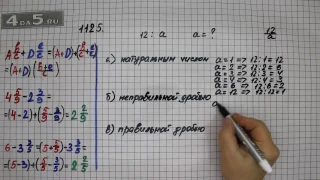 4DS.RU
1125.
12 : a    a = ?    12/a
A b/c + D e/c =
= (A+D) + (b/c + e/c)
4 5/9 - 2 3/9 =
= (4-2) + (5/9 - 3/9) = 2 2/9
6 - 3 3/5 = (5 + 5/5) - 3 3/5 =
= (5-3) + (5/5 - 3/5) = 2 2/5
а) натуральным числом
a = 1 => 12:1 = 12
a = 2 => 12:2 = 6
a = 3 => 12:3 = 4
a = 4 => 12:4 = 3
a = 6 => 12:6 = 2
a = 12 => 12:12 = 1
б) неправильной дробью
в) правильной дробью